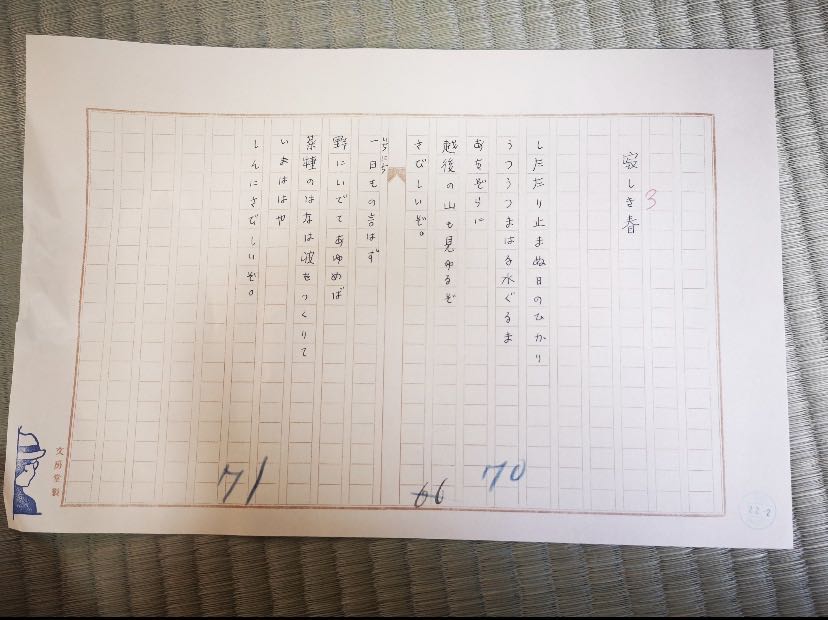 3
寂しき春
したたり止まぬ日のひかり
うつうつまはる水ぐるま
あをぞらに
越後の山も見ゆるぞ
さびしいぞ。
いちにち
一日もの言はず
野にいでてあゆめば
菜種のはなは波をつくりて
いまははや
しんにさびしいぞ。
70
66
71
文房堂製
22-2